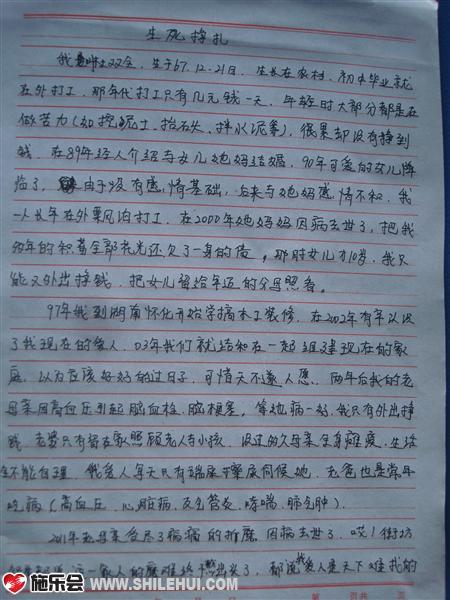 生死挣扎
我是叶土双全，生于67.12.21日，生长在农村，初中毕业就
在外打工，那年代打工只有几元钱一天，年轻时大部分都是在
做苦力(如挖泥工、抬石头、拌水泥等)，很累却没有挣到
钱，在89年经人介绍与女儿她妈结婚，90年可爱的女儿降
临了，由于没有感情基础，后来与她妈感情不和，我
一人长年在外东风西打工，在2000年她妈妈因病去世了，把我
多年的积蓄全部花光还欠了一身的债。那时女儿才10岁，我只
能又外出挣钱，把女儿留给年迈的父母照看。
97年我到湖南怀化开始学搞木工装修，在2002年有幸认识
了我现在的爱人，03年我们就结和在一起组建现在的家
庭，以为应该好好的过日子，可惜天不遂人愿，两年后我的老
母亲因高血压引起脑血栓、脑梗塞，等她病一好，我只有外出挣
钱，老婆只有留在家照顾老人与小孩，没过的久母亲全身瘫痪，生活
不能自理，我爱人每天只有端屎端尿伺候她，老爸也是常年
吃病(高血压、心脏病、支气管炎、哮喘、肺气肿)。
2011年老母亲受尽了病痛的折磨，因病去世了，哎！街坊
这一家人的磨难终于熬出头了，都说我爱人是天下难找的
施乐会
WWW.SHILEHUI.COM